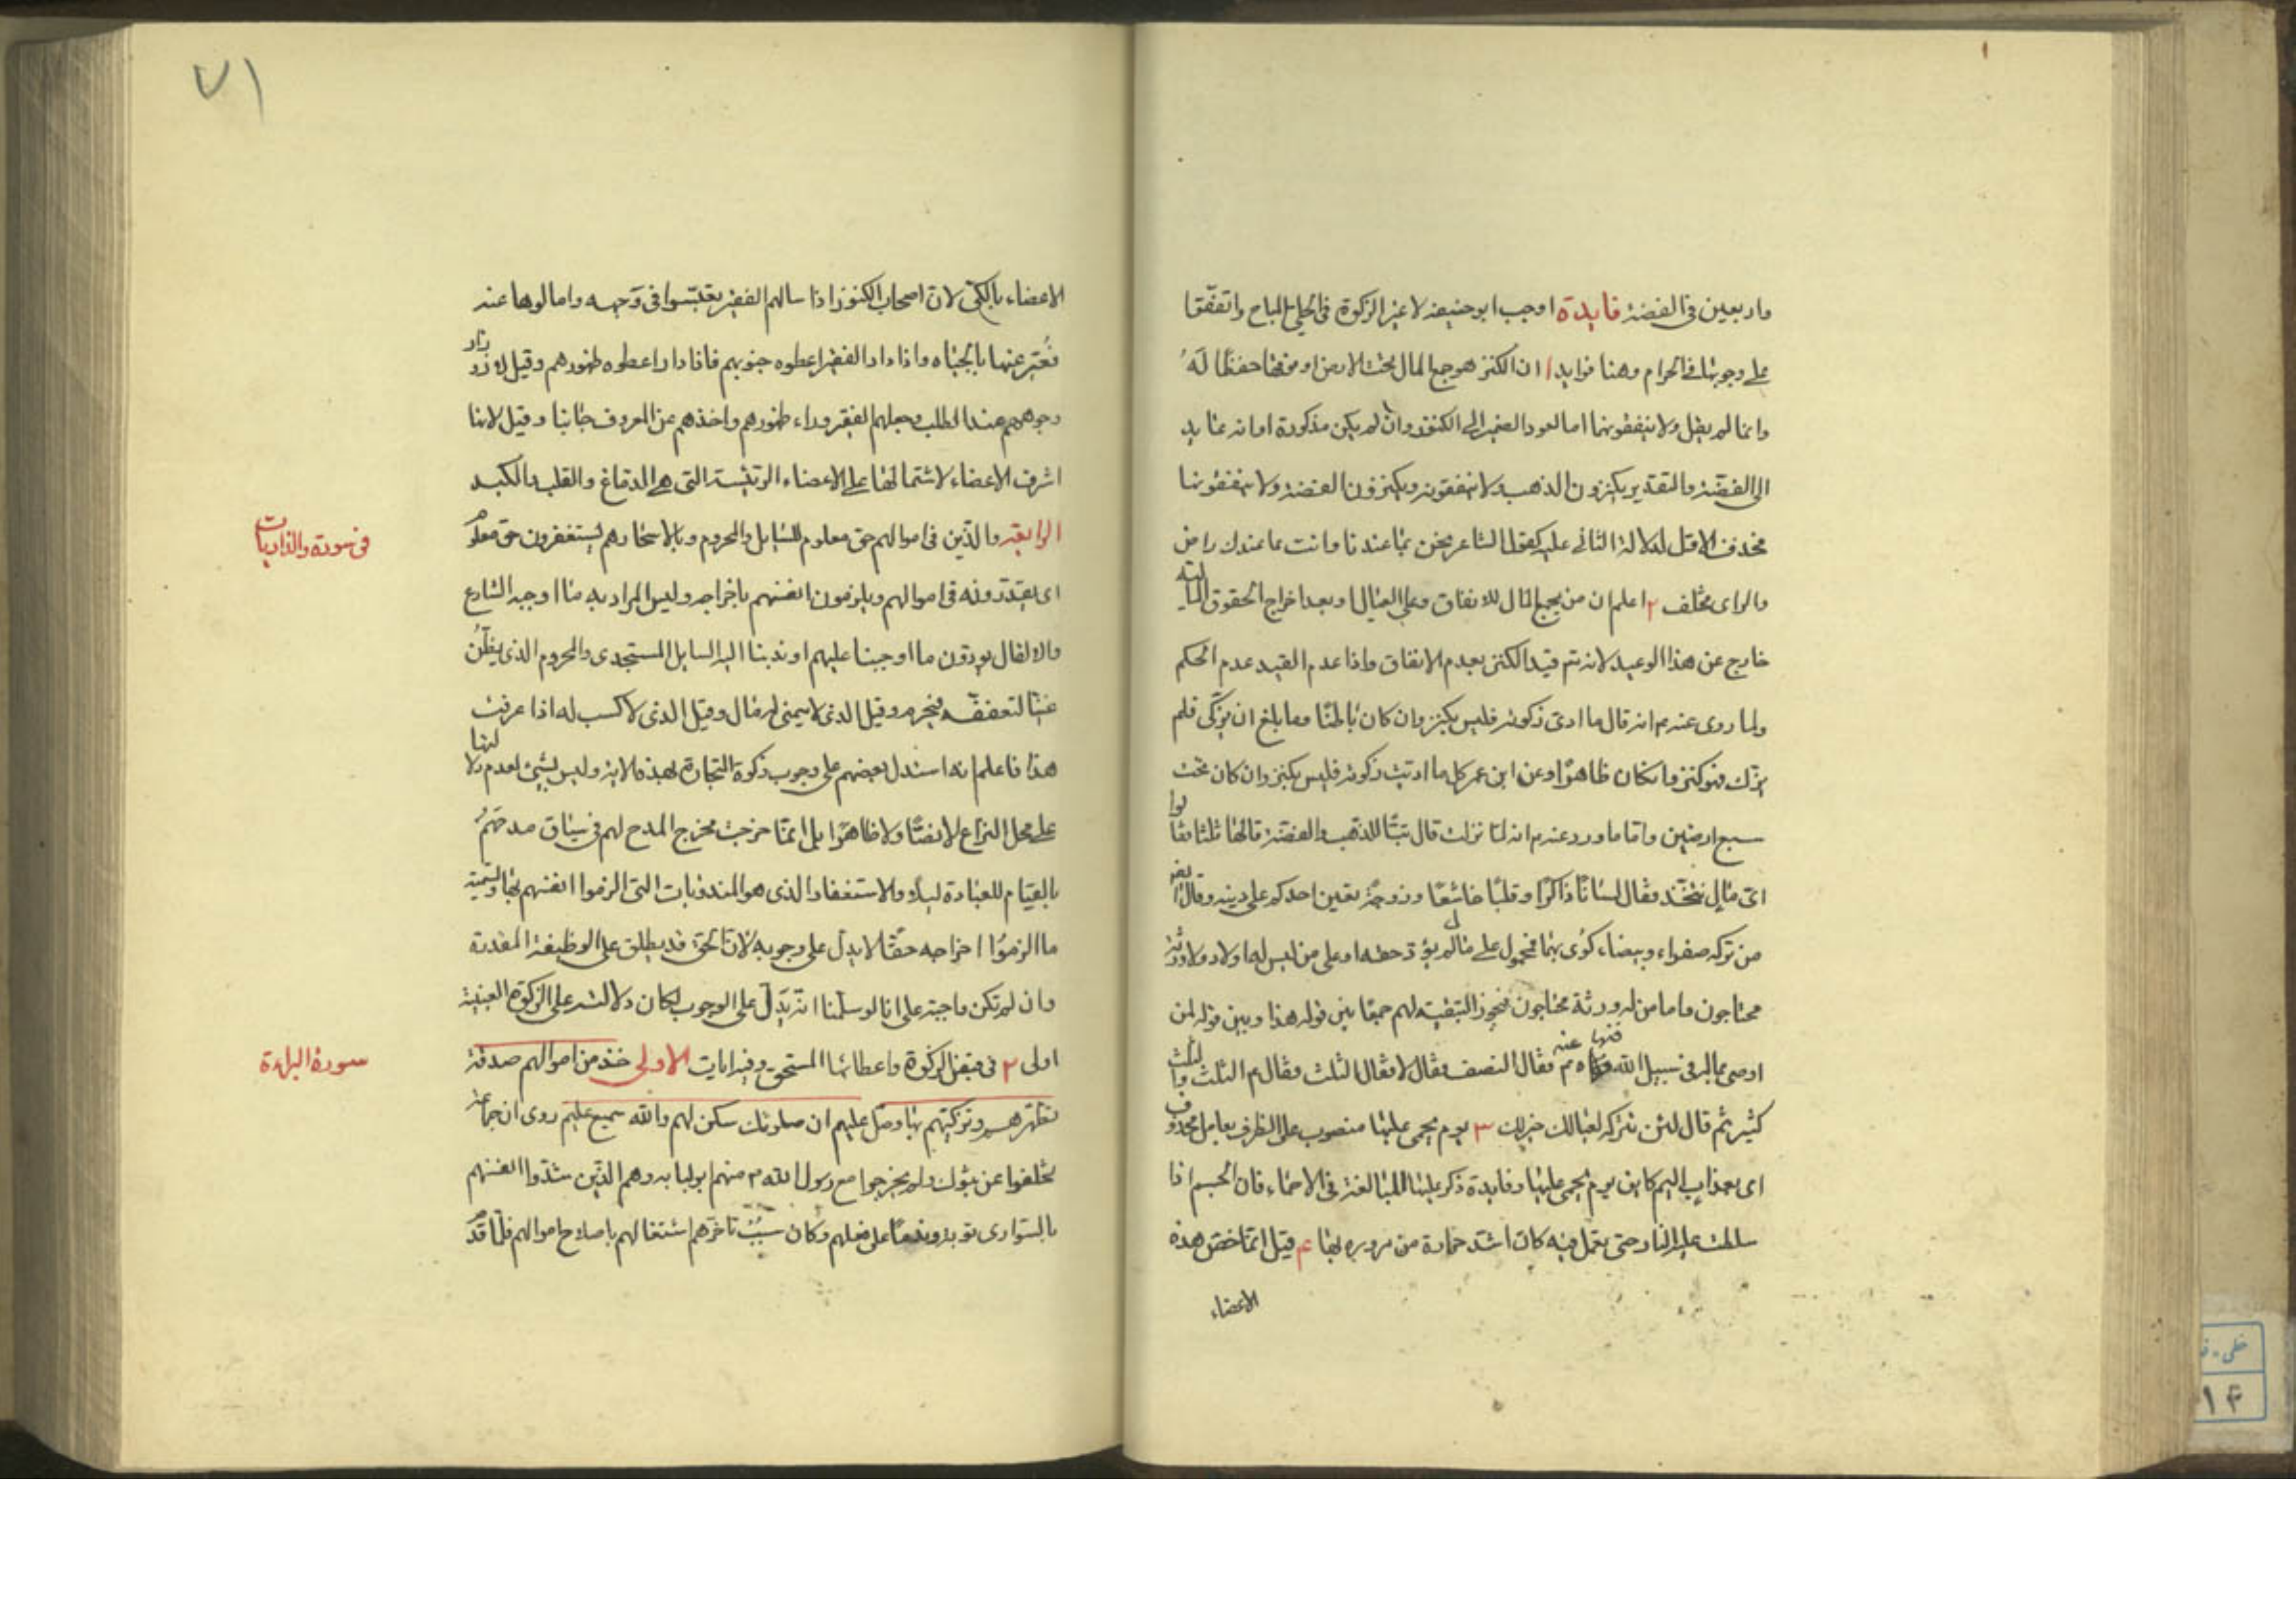 واربعين فى الفضة فايدة اوجب ابو حنيفة لا غير الزكوة فى الحلى المباح واتفقا
على وجوبها فى الحرام وهنا فوايد ا ان الكنز هو جمع المال تحت الارض او فوقها حفظا له
وانما لم يقل ولا ينفقونهما اما لعود الضمير الى الكنوز وان لم يكن مذكورة او انه عايد
الى الفضة والتقدير يكنزون الذهب ولا ينفقونه ويكنزون الفضة ولا ينفقونها
فحذف الاول لدلالة الثانى عليه كقول الشاعر نحن بما عندنا وانت بما عندك راض
والراى مختلف ٢ اعلم ان من يجمع المال للانفاق وعلى العيال او بعد اخراج الحقوق المالية
خارج عن هذا الوعيد لانه تم قيد الكنز بعدم الانفاق واذا عدم القيد عدم الحكم
ولما روى عنه م انه قال ما ادى زكوته فليس بكنز وان كان باطنا وما بلغ ان يزكى فلم
يزك فهو كنز وان كان ظاهرا وعن ابن عمر كل ما اديت زكوته فليس بكنز وان كان تحت
سبع ارضين واما ما ورد عنه م انه لما نزلت قال تبا للذهب والفضة قالها ثلثا فقالوا
اى مال نتخذ فقال لسانا ذاكرا وقلبا خاشعا وزوجة تعين احدكم على دينه وقوله
من ترك صفراء وبيضاء كوى بهما فمحمول على مال لم يؤد حقه او على من ليس له اولاد ولا ورثة
محتاجون واما من له ورثة محتاجون فيجوز التبقية لهم جمعا بين قوله هذا وبين قوله لمن
اوصى بماله فى سبيل الله فنهاه عنه م فقال النصف فقال لا فقال الثلث فقال م الثلث والثلث
كثير ثم قال لئن تتركه لعيالك خير لك ٣ يوم يحمى عليها منصوب على الظرف بعامل محذوف
اى بعذاب اليم كاين يوم يحمى عليها وفايدة ذكر عليها المبالغة فى الاحماء فان الجسم اذا
سالمت عليه النار حتى تعمل فيه كان اشد حرارة من مروره بها ع قيل انما خص هذه
الاعضاء
٧١
الاعضاء بالكى لان اصحاب الكنوز اذا سالهم الفقير تعبسوا فى وجهه وامالوها عنه
فعبر عنها بالجباه واذا دار الفقير اعطوه جنوبهم فاذا دار اعطوه ظهورهم وقيل لازورار
وجوههم عند الطلب وجعلهم الفقير وراء ظهورهم واخذهم عن المعروف جانبا وقيل لانها
اشرف الاعضاء لاشتمالها على الاعضاء الرئيسة التى هى الدماغ والقلب والكبد
الرابعة والذين فى اموالهم حق معلوم للسايل والمحروم وبالاسحار هم يستغفرون حق معلوم
فى سورة والذاريات
اى يقدرونه فى اموالهم ويلزمون انفسهم باخراجه وليس المراد به ما اوجبه الشارع
والا لقال يودون ما اوجبنا عليهم او ندبنا اليه السايل المستجدى والمحروم الذى يظن
غنيا لتعففه فيحرم وقيل الذى لا ينمى له مال وقيل الذى لا كسب له اذا عرفت
هذا فاعلم انه استدل بعضهم على وجوب زكوة التجارة بهذه الاية وليس بشئ لعدم دلالتها
على محل النزاع لا نصا ولا ظاهرا بل انما خرجت مخرج المدح لهم فى سياق مدحهم
بالقيام للعبادة ليلا والاستغفار الذى هو المندوبات التى الزموا انفسهم بها وتسمية
ما الزموا اخراجه حقا لا يدل على وجوبه لان الحق قد يطلق على الوظيفة المقدرة
وان لم تكن واجبة على انا لو سلمنا انه يدل على الوجوب لكان دلالته على الزكوة العينية
اولى ٢ فى قبض الزكوة واعطائها المستحق وفيه ايات الاولى خذ من اموالهم صدقة
سورة البراءة
تطهرهم وتزكيهم بها وصل عليهم ان صلوتك سكن لهم والله سميع عليم روى ان جماعة
تخلفوا عن تبوك ولم يخرجوا مع رسول الله م منهم ابو لبابه وهم الذين شدوا انفسهم
بالسوارى توبة وندما على فعلهم وكان سبب تاخرهم اشتغالهم باصلاح اموالهم فلما قدم